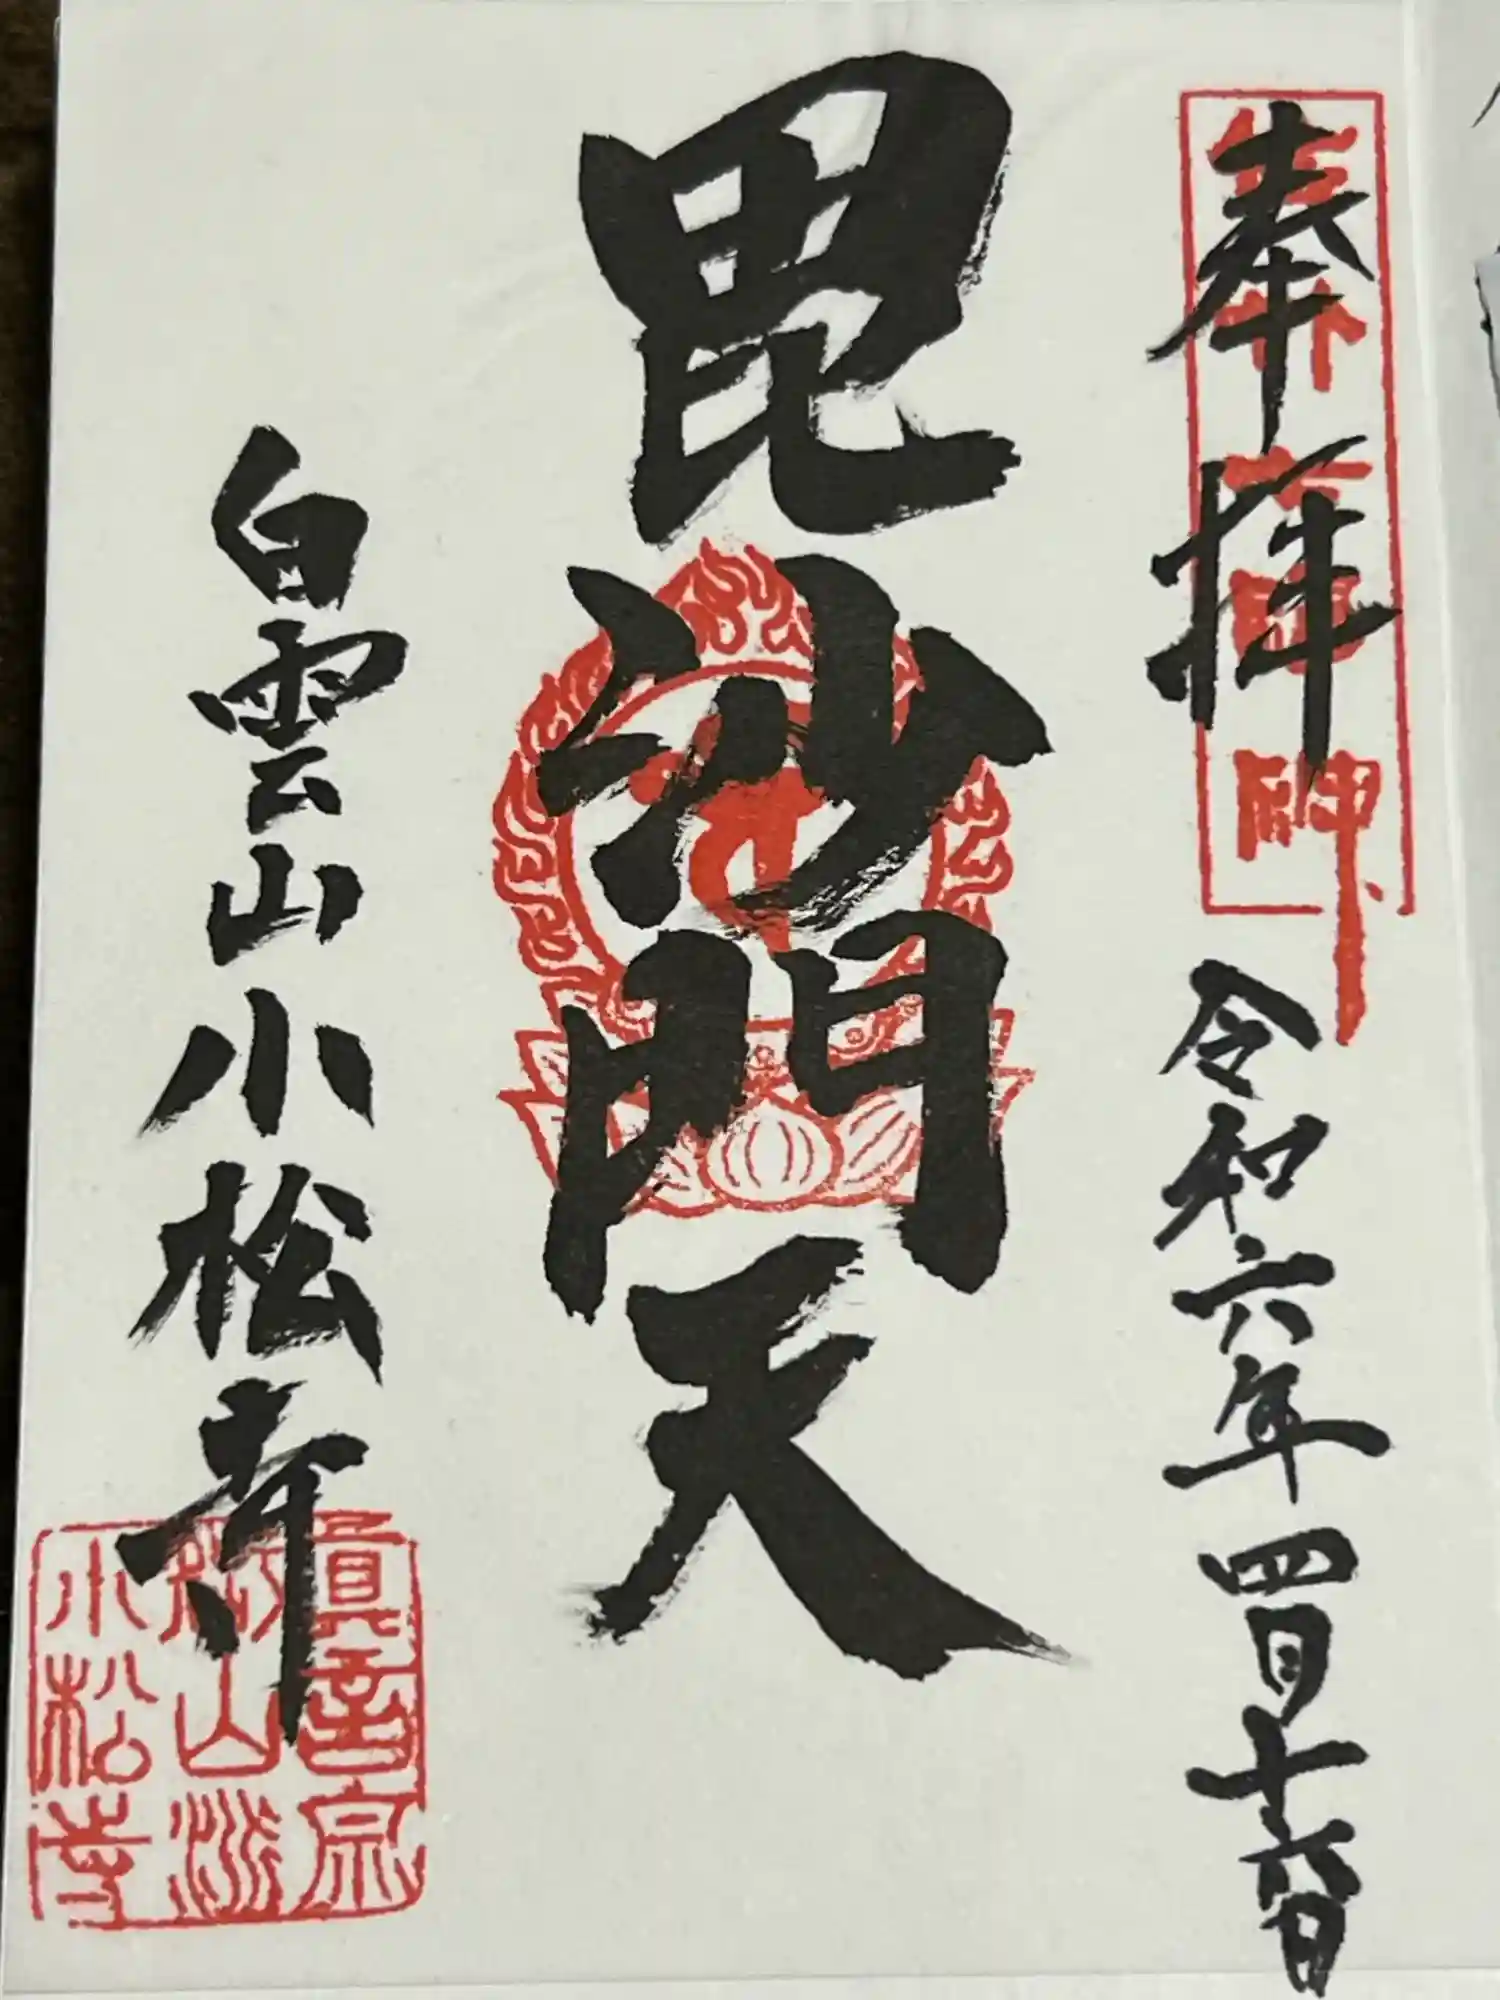 奉拝
令和六年四月十六日
毘沙門天
白雲山小松寺
真言宗
御山派
小松寺